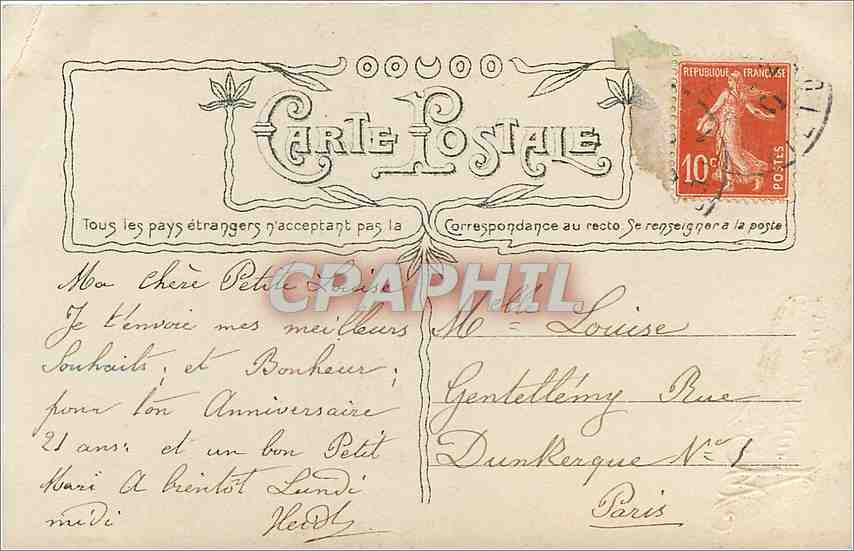 CARTE POSTALE
RÉPUBLIQUE FRANÇAISE
10 c
POSTES
Tous les pays étrangers n'acceptant pas la Correspondance au recto. Se renseigner a la poste
CPAPHIL
Ma chère Petite Louise
Je t'envoie mes meilleurs
Souhaits; et Bonheur;
pour ton Anniversaire
21 ans: et un bon Petit
Mari A bientôt Lundi
midi
Melle Louise
Gentellémy Rue
Dunkerque No 1
Paris